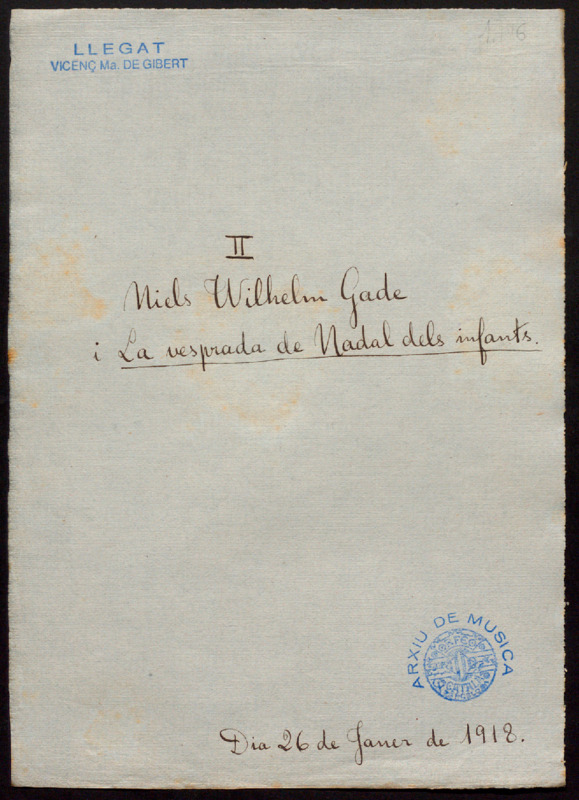 LLEGAT
VICENÇ Ma. DE GIBERT
II
Niels Wilhelm Gade
i La vesprada de Nadal dels infants.
ARXIU DE MUSICA
Dia 26 de Janer de 1918.